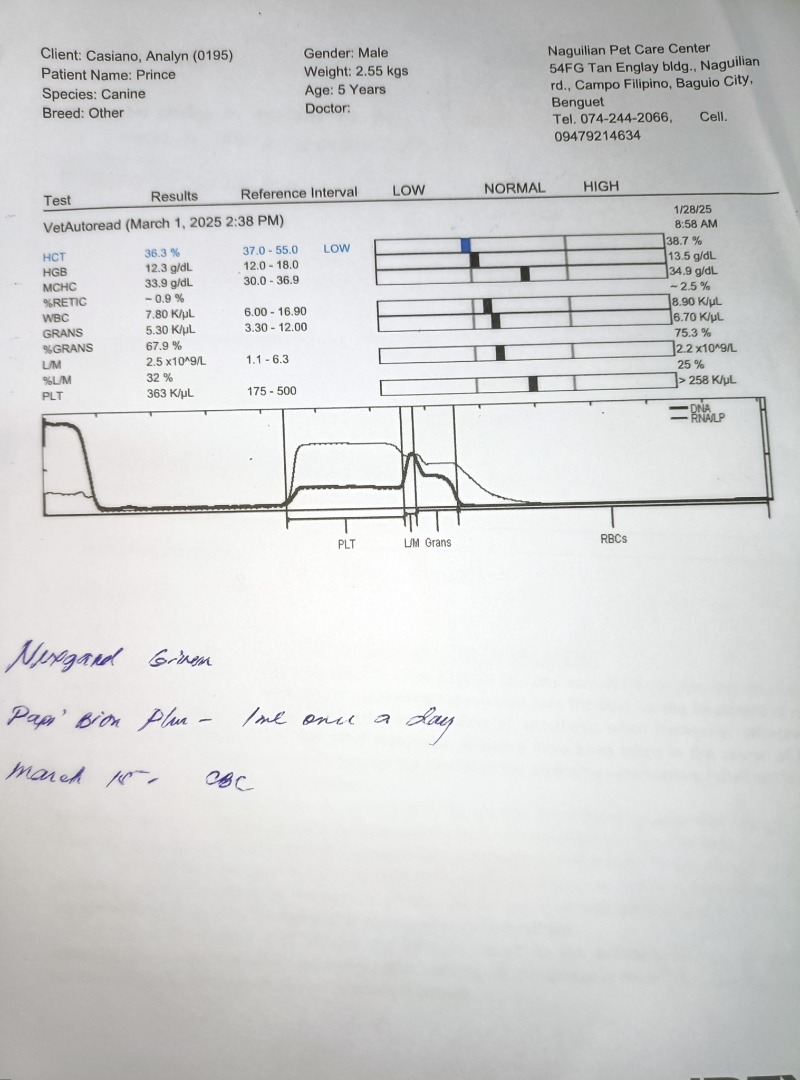 Client: Casiano, Analyn (0195)
Patient Name: Prince
Species: Canine
Breed: Other
Gender: Male
Weight: 2.55 kgs
Age: 5 Years
Doctor:
Naguilian Pet Care Center
54FG Tan Englay bldg., Naguilian
rd., Campo Filipino, Baguio City,
Benguet
Tel. 074-244-2066, Cell.
09479214634
Test Results Reference Interval LOW NORMAL HIGH
VetAutoread (March 1, 2025 2:38 PM) 1/28/25
8:58 AM
HCT 36.3 % 37.0 - 55.0 LOW 38.7 %
HGB 12.3 g/dL 12.0 - 18.0 13.5 g/dL
MCHC 33.9 g/dL 30.0 - 36.9 34.9 g/dL
%RETIC ~ 0.9 % ~ 2.5 %
WBC 7.80 K/µL 6.00 - 16.90 8.90 K/µL
GRANS 5.30 K/µL 3.30 - 12.00 6.70 K/µL
%GRANS 67.9 % 75.3 %
L/M 2.5 x10^9/L 1.1 - 6.3 2.2 x10^9/L
%L/M 32 % 25 %
PLT 363 K/µL 175 - 500 > 258 K/µL
DNA
RNA/LP
PLT L/M Grans RBCs
Nexgard Given
Papi Bion Plus - 1ml once a day
March 15 - CBC